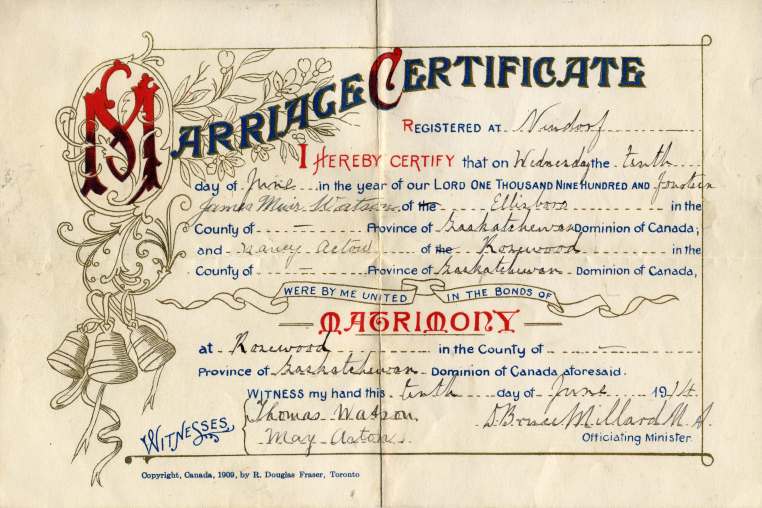 MARRIAGE CERTIFICATE
REGISTERED AT
I HEREBY CERTIFY that on Wednesday the tenth
day of June in the year of our LORD ONE THOUSAND NINE HUNDRED AND fourteen
James Muir Watson of the Ellisboro in the
County of — Province of Saskatchewan Dominion of Canada;
and Nancy Acton of the Rosewood in the
County of — Province of Saskatchewan Dominion of Canada,
WERE BY ME UNITED IN THE BONDS OF
MATRIMONY
at Rosewood in the County of —
Province of Saskatchewan Dominion of Canada aforesaid.
WITNESS my hand this tenth day of June 1914
WITNESSES
Thomas Watson
May Acton
D. Bruce Millard M.A.
Officiating Minister
Copyright, Canada, 1909, by R. Douglas Fraser, Toronto